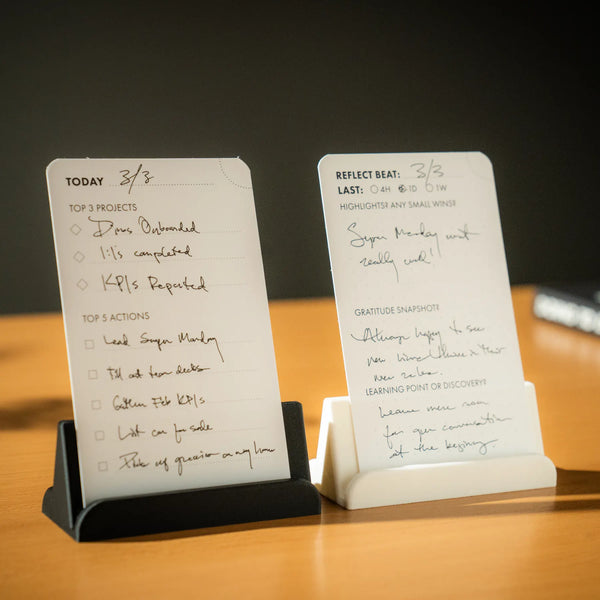 TODAY 3/3
TOP 3 PROJECTS
Onboarded
1:1's completed
KPIs Reported
TOP 5 ACTIONS
Lead Super Monday
out team decks
Gather Feb KPIs
List car for sale
groceries on way home
REFLECT BEAT: 3/3
LAST: 4H 1D 1W
HIGHLIGHTS? ANY SMALL WINS?
Super Monday went
really well!
GRATITUDE SNAPSHOT?
Always happy to see
new hires thrive in their
new roles.
LEARNING POINT OR DISCOVERY?
Leave more room
for open conversation
at the beginning.